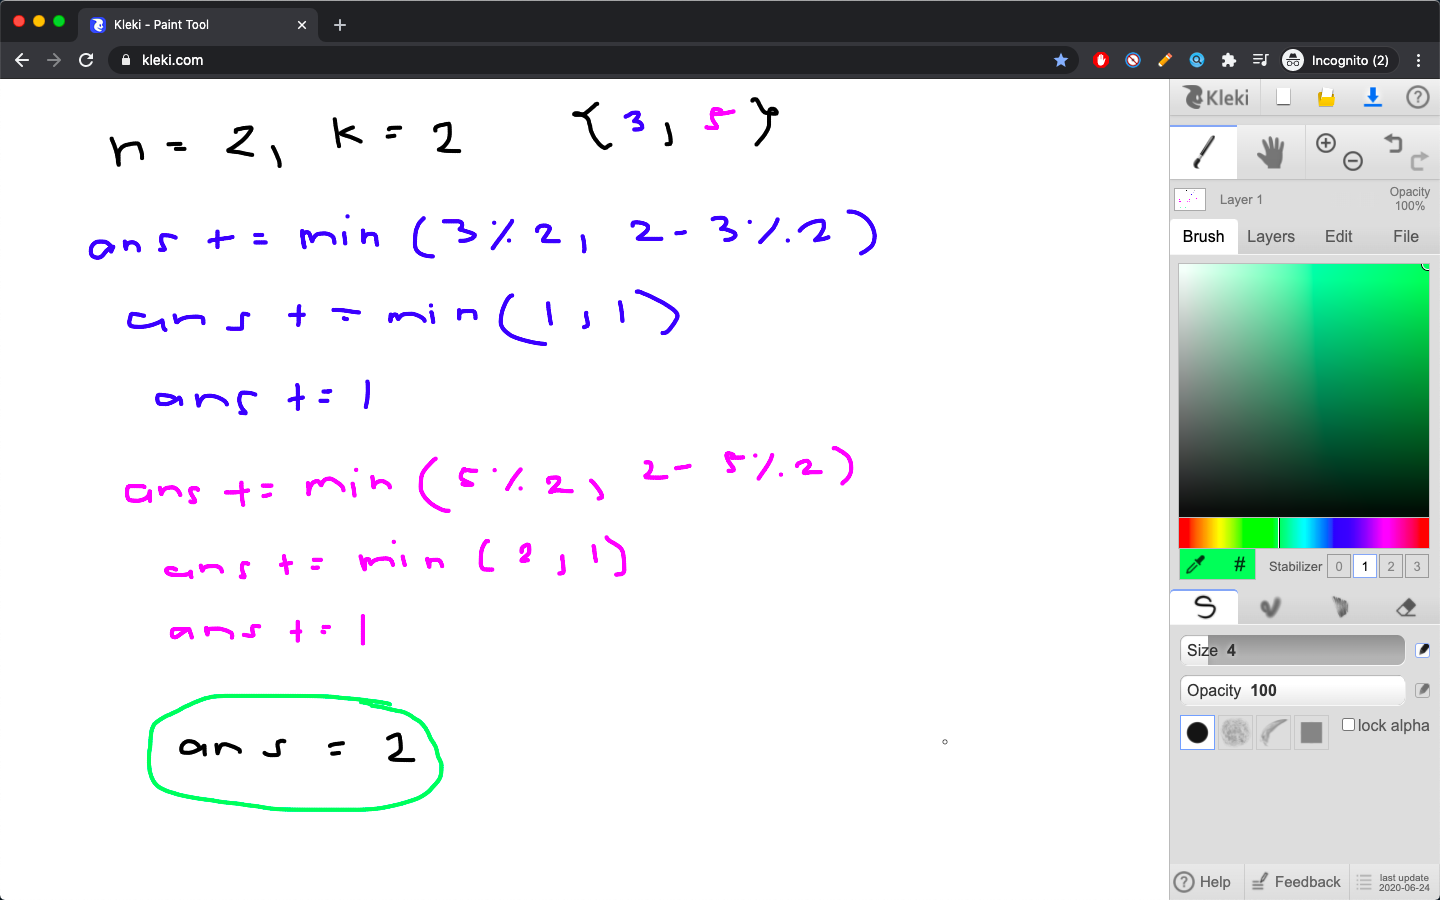 Kleki - Paint Tool
kleki.com
Incognito (2)
n = 2, k = 2 {3, 5}
ans += min (3 % 2, 2 - 3 % 2)
ans += min (1, 1)
ans += 1
ans += min (5 % 2, 2 - 5 % 2)
ans += min (2, 1)
ans += 1
ans = 2
Kleki
Layer 1
Opacity
100%
Brush Layers Edit File
# Stabilizer 0 1 2 3
Size 4
Opacity 100
lock alpha
Help Feedback last update
2020-06-24